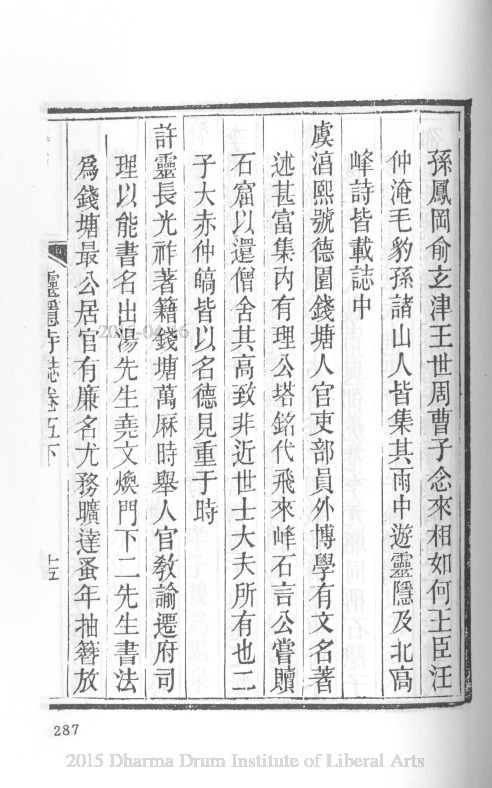 孫鳳岡俞玄津王世周曹子念來相如何王臣汪
仲淹毛豹孫諸山人皆集其雨中遊靈隱及北高
峰詩皆載誌中
虞淳熙號德園錢塘人官吏部員外博學有文名著
述甚富集內有理公塔銘代飛來峰石言公嘗贖
石窟以還僧舍其高致非近世士大夫所有也二
子大赤仲皜皆以名德見重于時
許靈長光祚著籍錢塘萬厤時舉人官敎諭遷府司
理以能書名出湯先生堯文煥門下二先生書法
爲錢塘最公居官有廉名尤務曠達蚤年抽簪放
靈隱寺誌卷五下
十五
287
2015 Dharma Drum Institute of Liberal Arts